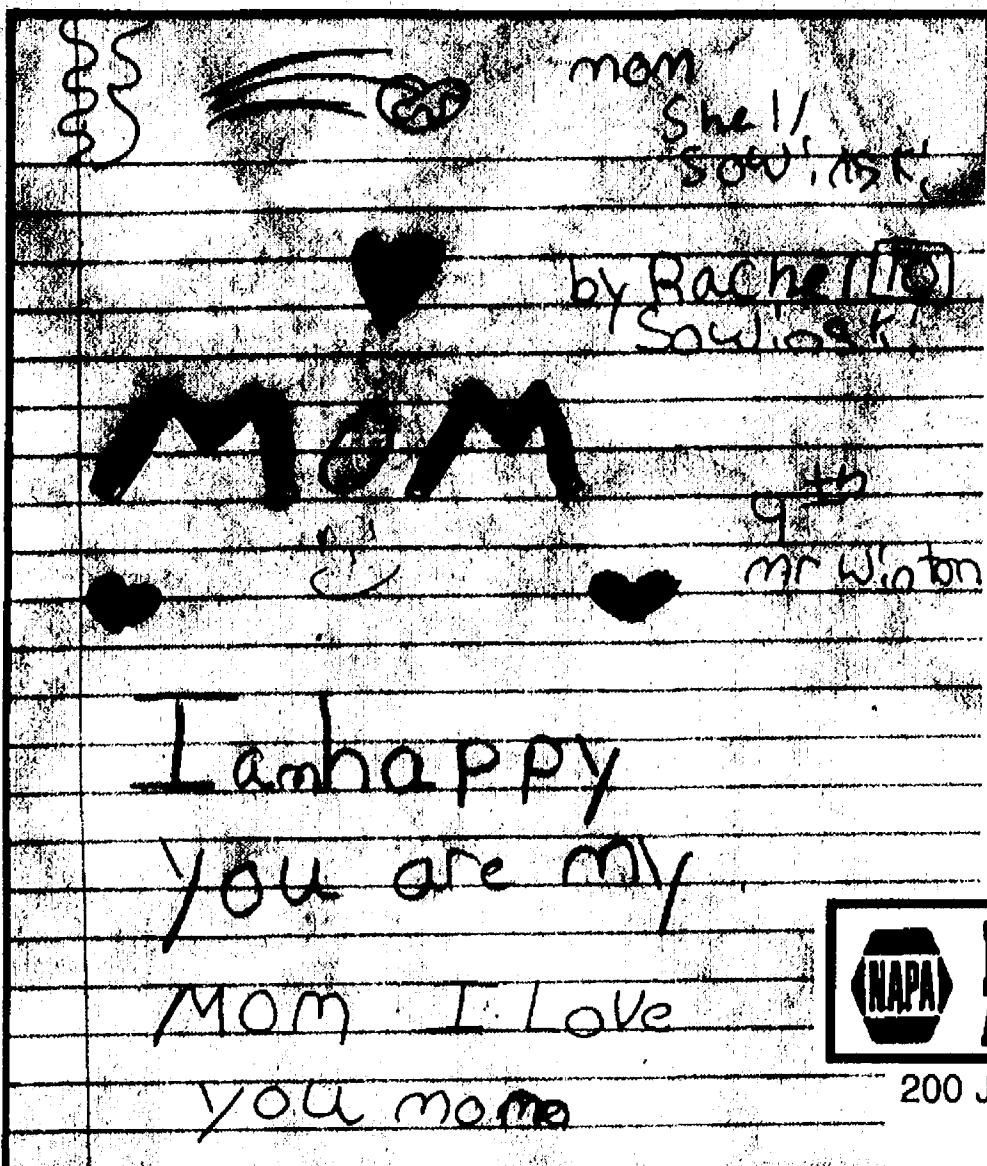 mom
Shelly
Sowinski
by Rachel 10
Sowinski
MOM
9th
mr Winton
I am happy
you are my
Mom I Love
you mom
NAPA
200 J